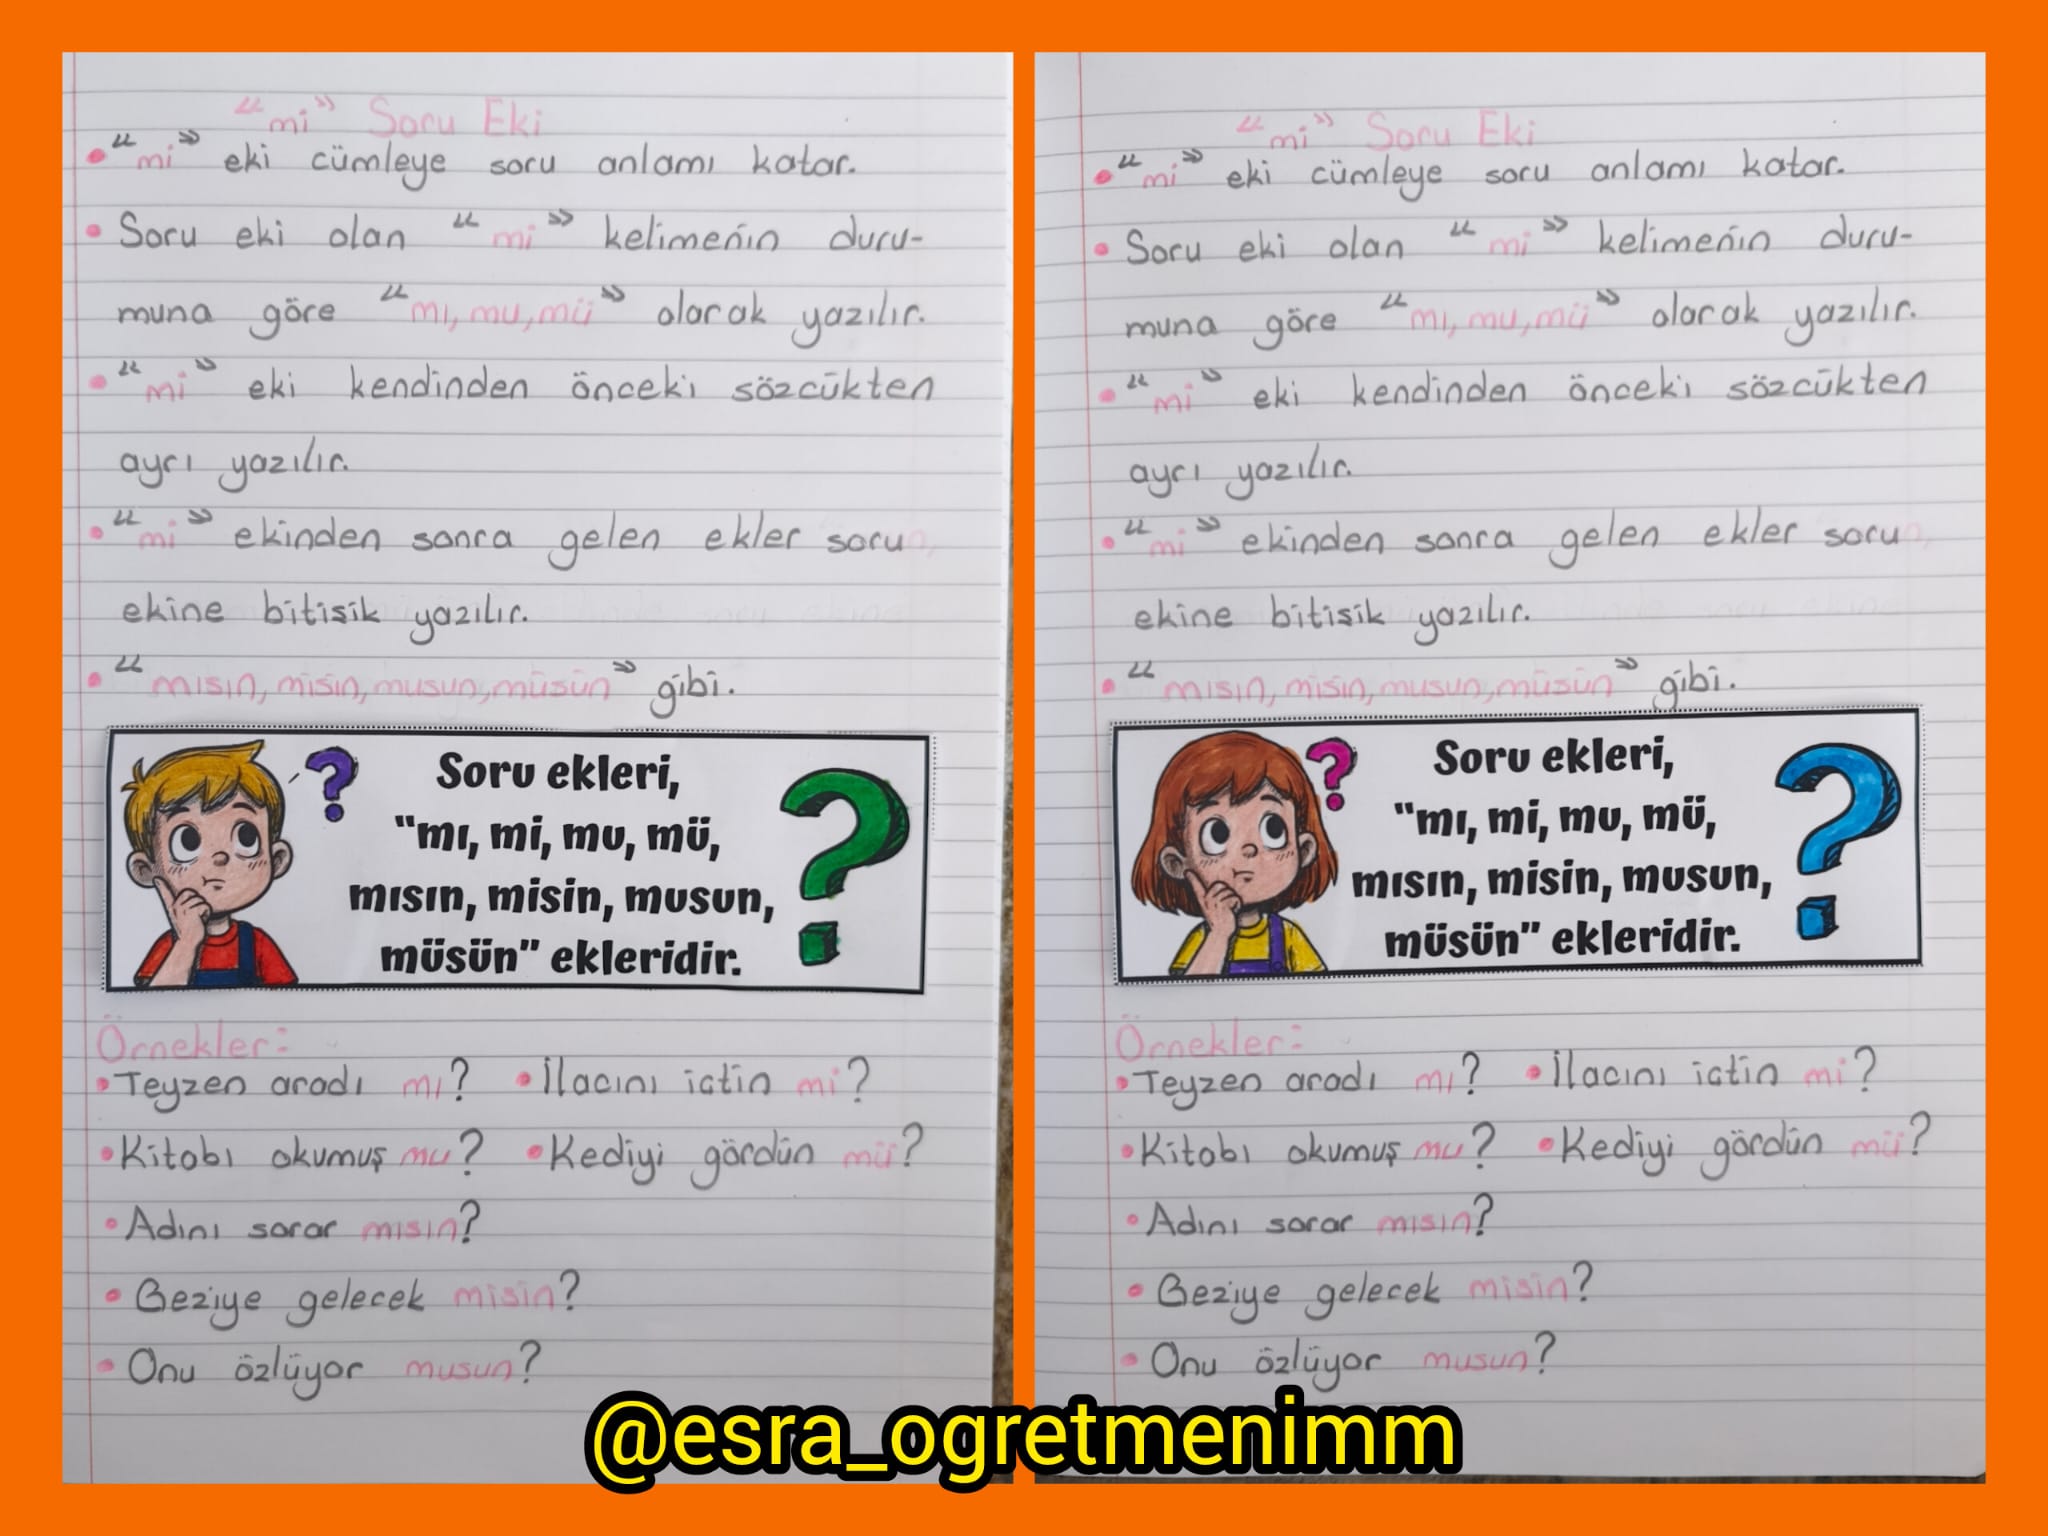 "mi" Soru Eki
• "mi" eki cümleye soru anlamı katar.
• Soru eki olan "mi" kelimenin duru-
muna göre "mı, mu, mü" olarak yazılır.
• "mi" eki kendinden önceki sözcükten
ayrı yazılır.
• "mi" ekinden sonra gelen ekler soru
ekine bitişik yazılır.
• "mısın, misin, musun, müsün" gibi.
Soru ekleri,
"mı, mi, mu, mü,
mısın, misin, musun,
müsün" ekleridir.
Örnekler:
• Teyzen aradı mı? • İlacını içtin mi?
• Kitabı okumuş mu? • Kediyi gördün mü?
• Adını sorar mısın?
• Geziye gelecek misin?
• Onu özlüyor musun?
"mi" Soru Eki
• "mi" eki cümleye soru anlamı katar.
• Soru eki olan "mi" kelimenin duru-
muna göre "mı, mu, mü" olarak yazılır.
• "mi" eki kendinden önceki sözcükten
ayrı yazılır.
• "mi" ekinden sonra gelen ekler soru
ekine bitişik yazılır.
• "mısın, misin, musun, müsün" gibi.
Soru ekleri,
"mı, mi, mu, mü,
mısın, misin, musun,
müsün" ekleridir.
Örnekler:
• Teyzen aradı mı? • İlacını içtin mi?
• Kitabı okumuş mu? • Kediyi gördün mü?
• Adını sorar mısın?
• Geziye gelecek misin?
• Onu özlüyor musun?
@esra_ogretmenimm